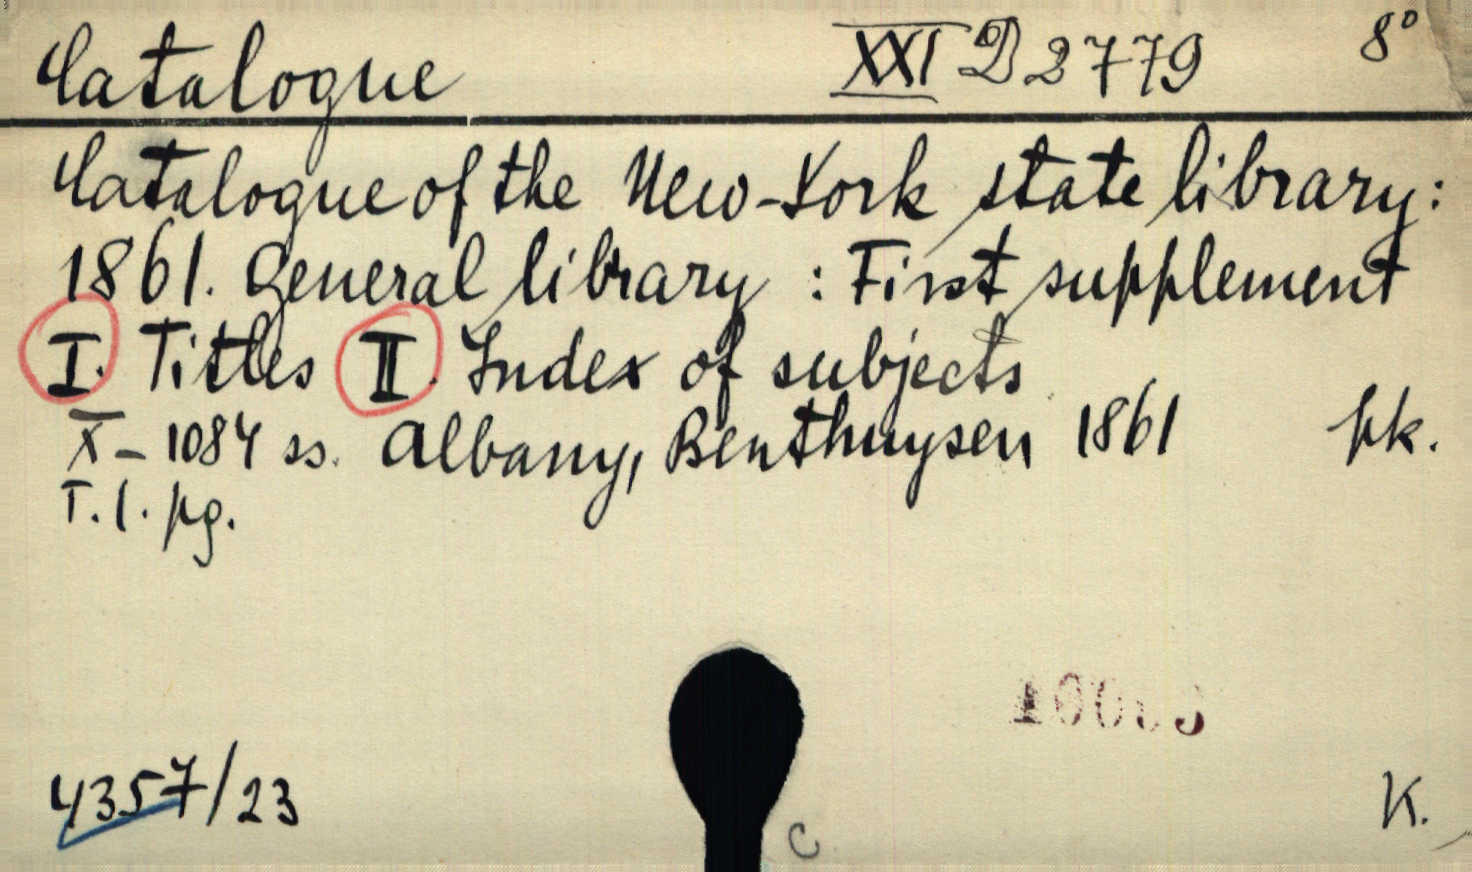 Catalogue XXI D 2779 8°
Catalogue of the New-York state library:
1861. General library : First supplement
I. Titles II. Index of subjects
X - 1084 ss. Albany, Benthuysen 1861 pk.
T. l. pg.
4357/23 K.
C